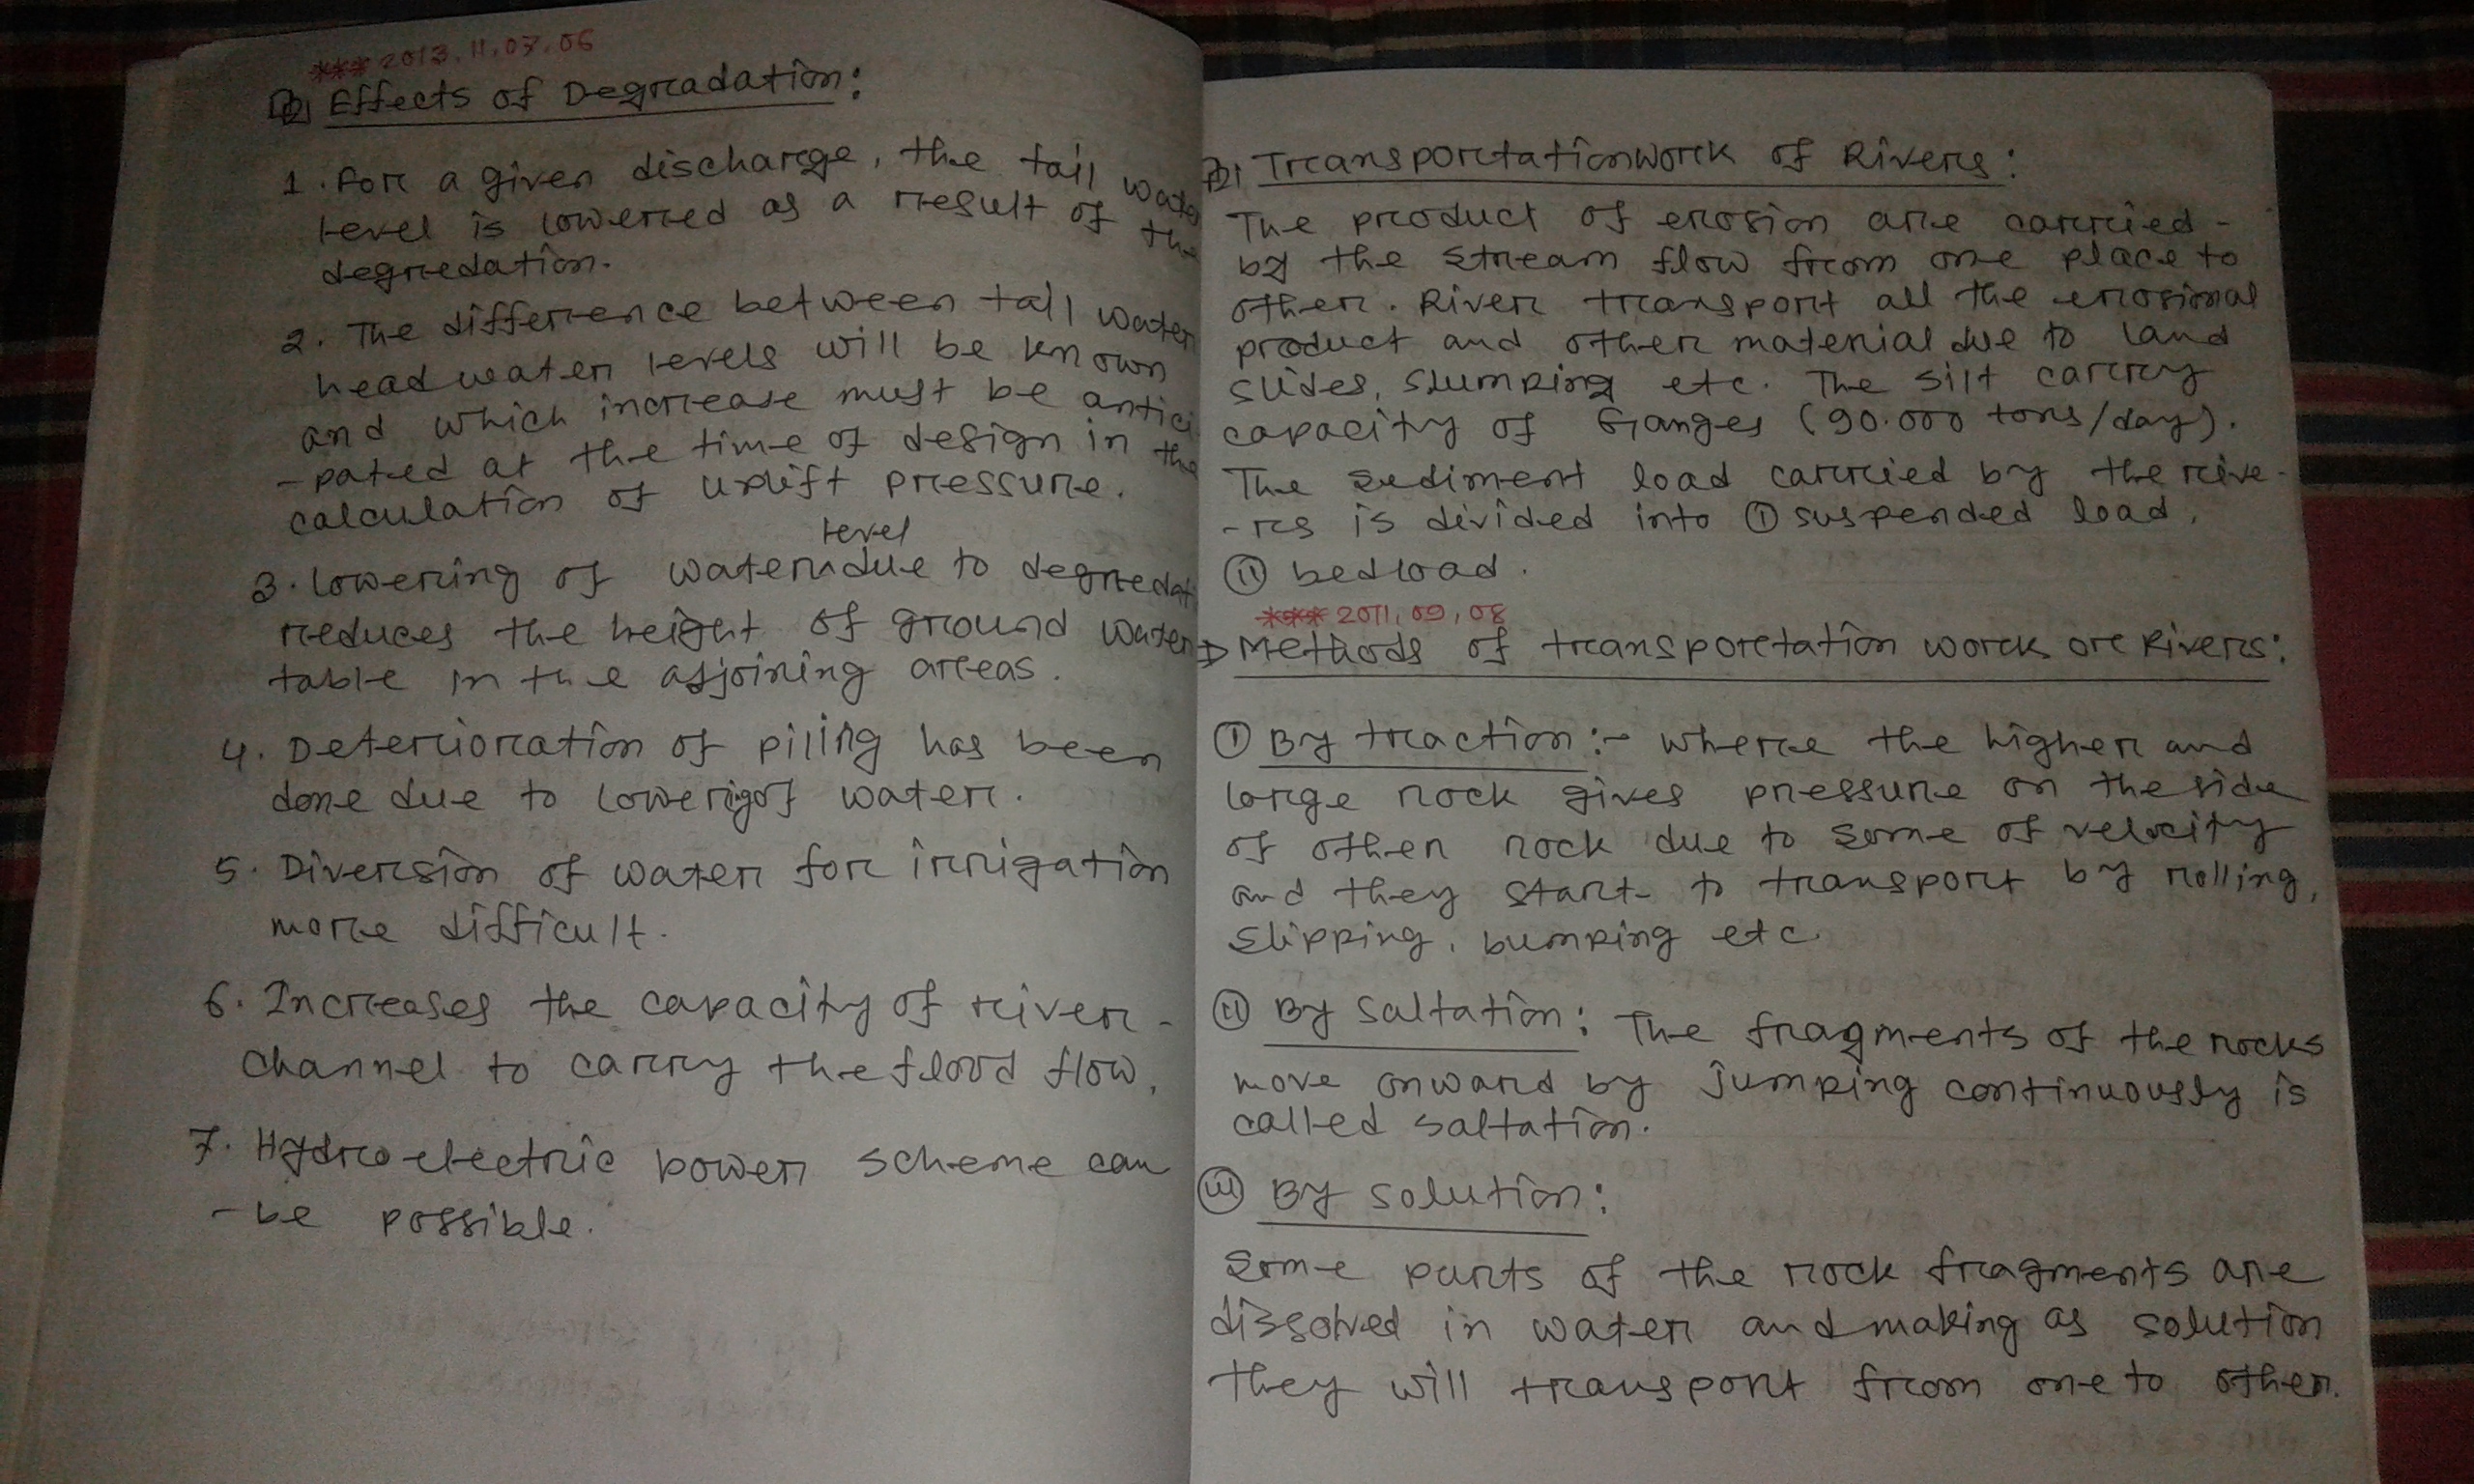 *** 2013, 11, 07, 06
Effects of Degradation:
1. For a given discharge, the tail water
level is lowered as a result of the
degredation.
2. The difference between tail water
head water levels will be known
and which increase must be antici
-pated at the time of design in the
calculation of uplift pressure.
level
3. Lowering of water due to degredat
reduces the height of ground water
table in the adjoining areas.
4. Deterioration of piling has been
done due to lowerigof water.
5. Diversion of water for irrigation
more difficult.
6. Increases the capacity of river -
channel to carry the flood flow.
7. Hydro electric power scheme can
-be possible.
Transportationwork of Rivers:
The product of erosion are carried -
by the stream flow from one place to
other. River transport all the erosional
product and other material due to land
slides, slumping etc. The silt carry
capacity of Ganges (90.000 tons/day).
The sediment load carried by the rive-
-rs is divided into (i) suspended load.
(ii) bedload.
*** 2011, 09, 08
Methods of transportation work or Rivers:
(i) By traction :- where the higher and
large rock gives pressure on the side
of other rock due to some of velocity
and they start to transport by rolling,
slipping, bumping etc
(ii) By saltation: The fragments of the rocks
move onward by jumping continuously is
called saltation.
(iii) By solution:
Some parts of the rock fragments are
dissolved in water and making as solution
they will transport from one to other.